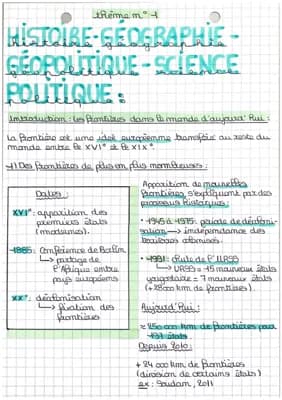 thème n°1
HISTOIRE-GÉOGRAPHIE-
GÉOPOLITIQUE-SCIENCE
POLITIQUE :
Introduction : les frontières dans le monde d'aujourd'hui :
La frontière est une idée européenne transférée au reste du
monde entre le XVI° et le XIX°.
1) Des frontières de plus en plus nombreuses :
Dates :
XVI° : apparition des
premiers états
(modernes).
1885 : Conférence de Berlin
↳ partage de
l'Afrique entre
pays européens
XX° : décolonisation
↳ fixation des
frontières
Apparition de nouvelles
frontières s'expliquent par des
processus historiques :
• 1945 à 1975 : période de décoloni-
sation → indépendance des
territoires colonisés.
• 1991 : chute de l'URSS
↳ URSS = 15 nouveaux états
yougoslavie = 7 nouveaux états
(+28000 km de frontières).
Aujourd'hui :
≈ 250 000 km de frontières pour
197 états.
Depuis 2010 :
+ 24 000 km de frontières
(division de certains états)
ex : Soudan, 2011